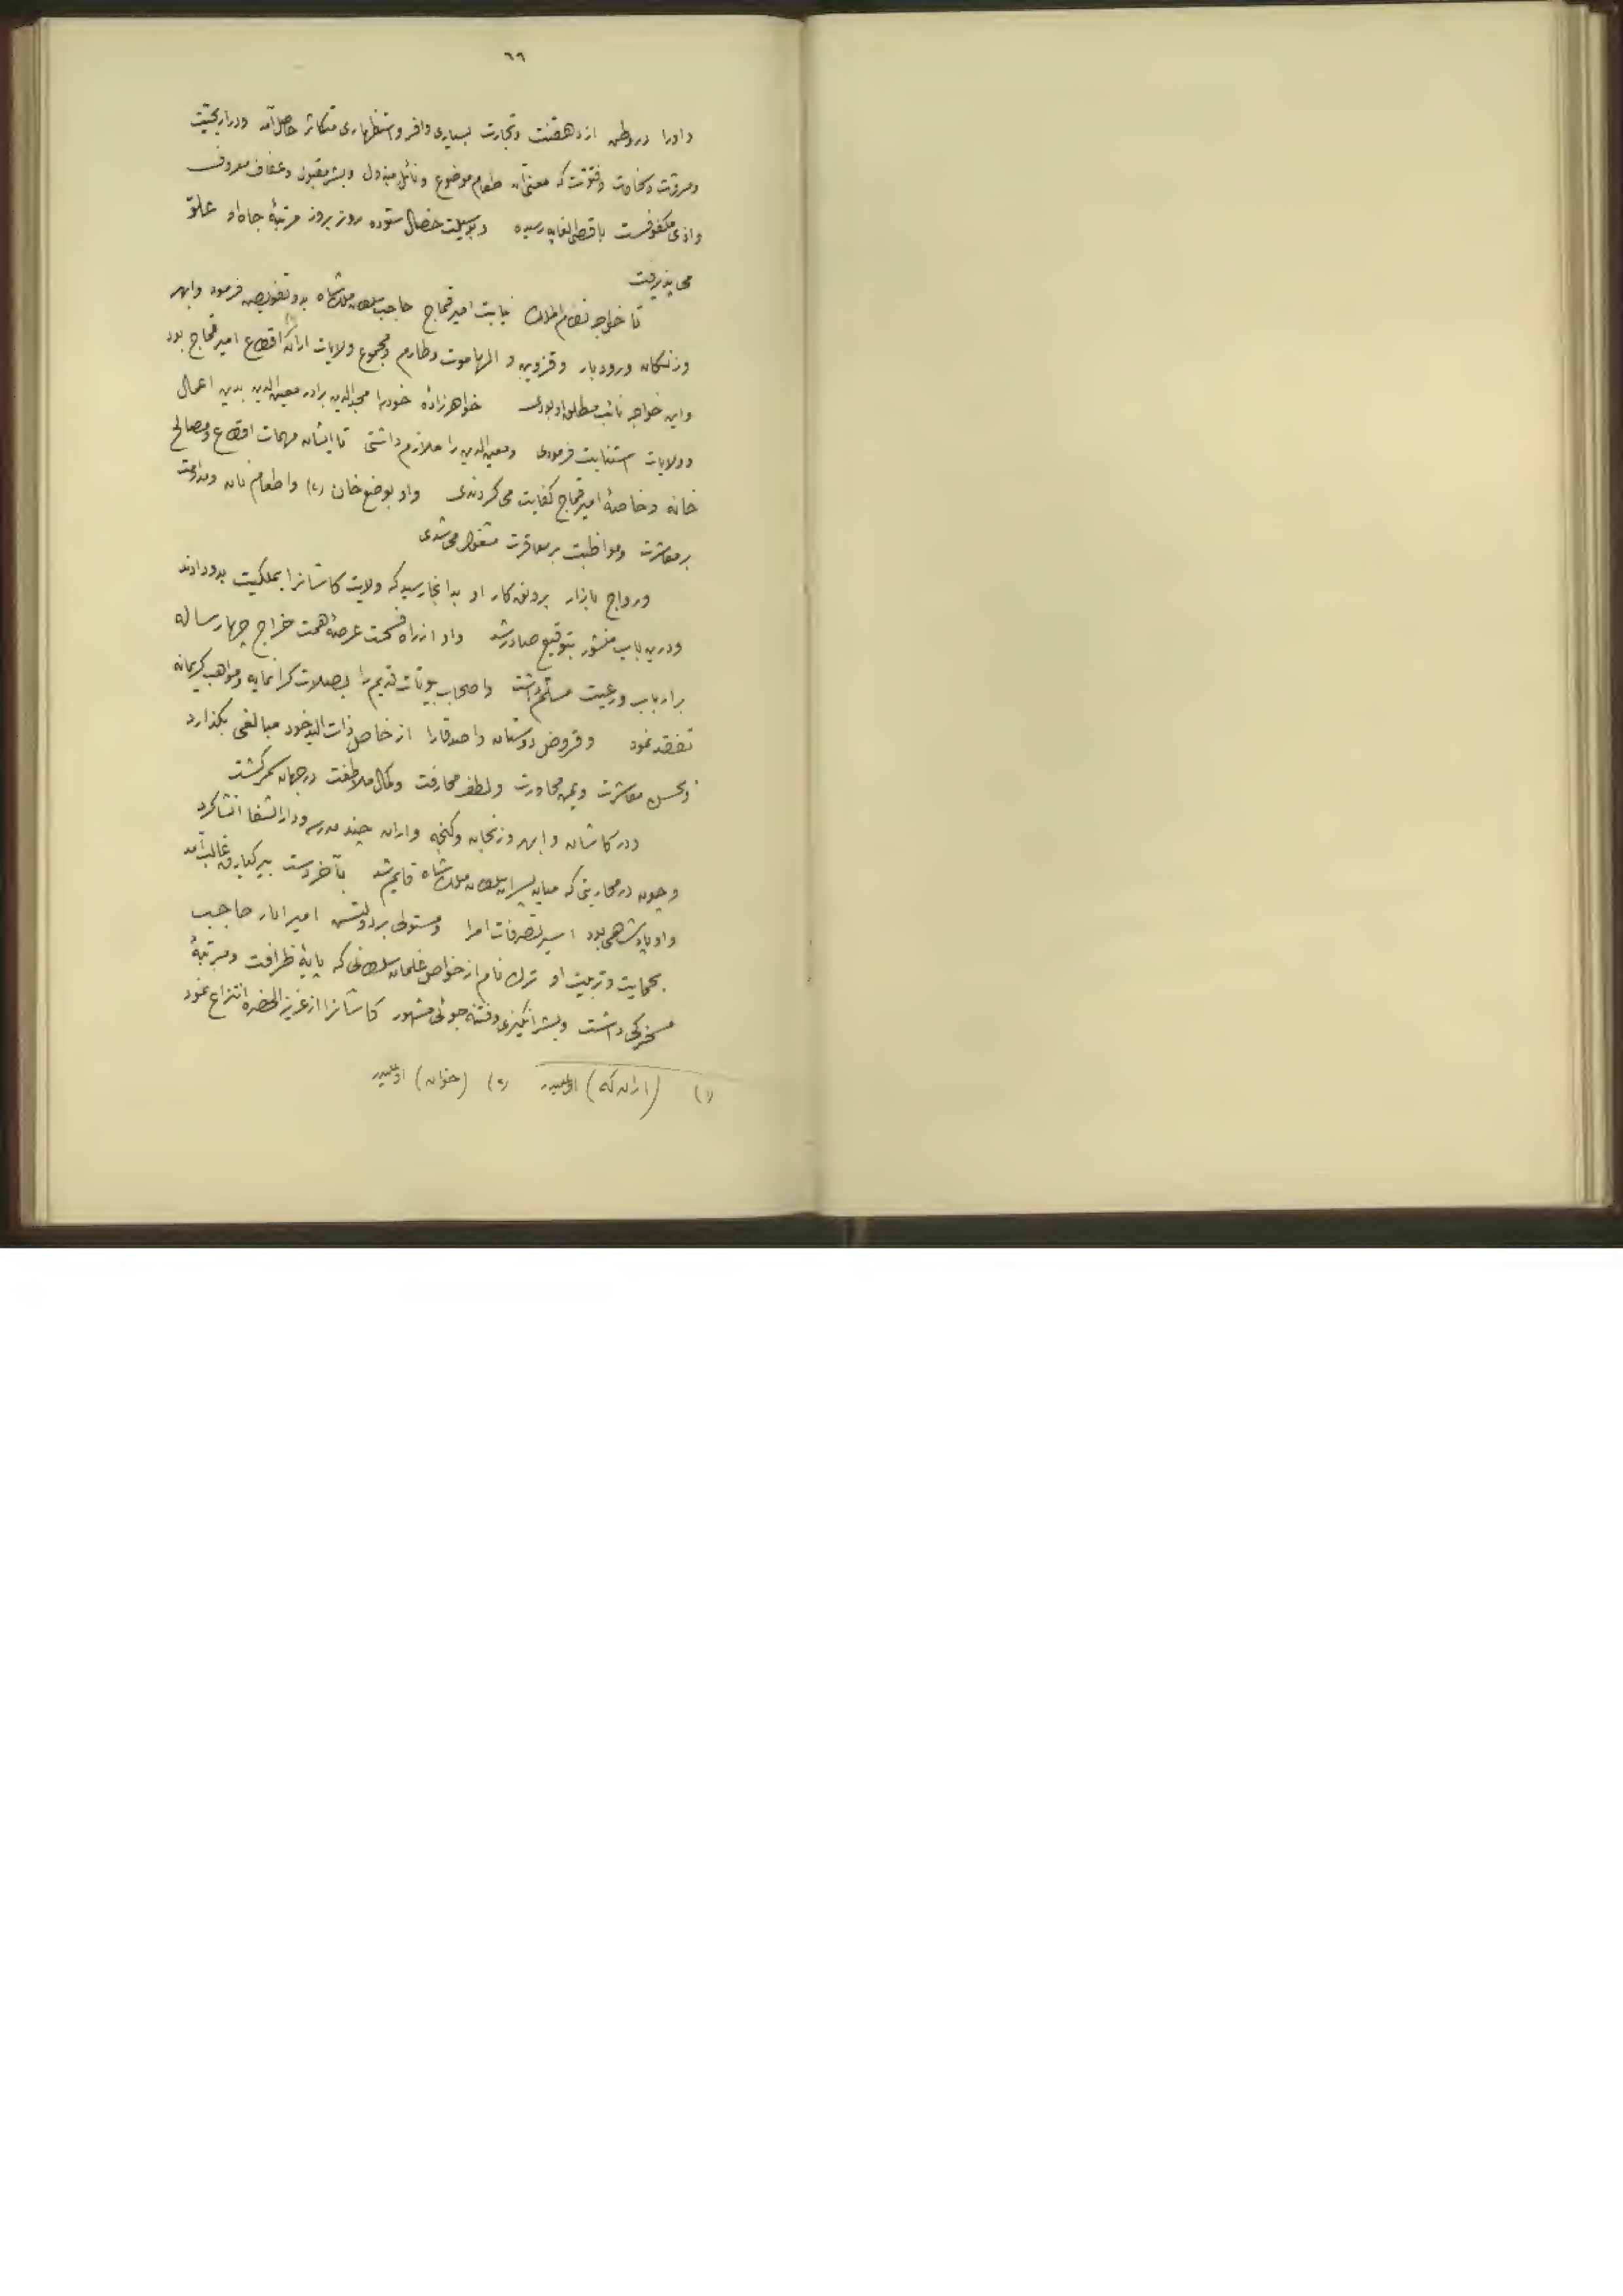 ٦٩
و اورا در وطن از دهقنت و تجارت بسیاری وافر و استظهاری متکاثر حاصل آمد و در اریحیّت
و مروّت و سخاوت و فتوّت که طعام موضوع و نائل مبذول و بشر مقبول و عفاف معروف
واذی مکفوفست باقصی الغایه رسیده و بوسیلت خصال ستوده روز بروز مرتبهٔ جاه او علوّ
می پذیرفت
تا خواجه نظام الملک نیابت امیر قماج حاجب سلطان ملکشاه بدو تفویض فرمود و ابهر
و زنگان و رودبار و قزوین و الهاموت و طارم و مجموع ولایات ارانه (١) اقطاع امیر قماج بود
و این خواجه نائب مطلق او بودی خواهرزادهٔ خودرا مجدالدین برادر معین الدین بدین اعمال
و ولایات استنابت فرمودی و معین الدین را ملازم داشتی تا ایشان مهمات اقطاع و مصالح
خانه و خاصهٔ امیر قماج کفایت می کردندی و او بوضع خان (٢) و اطعام نان و مداومت
بر معاشرت و مواظبت بر معاقرت مشغول می شدی
و رواج بازار برونق کار او بدانجا رسید که ولایت کاشانرا بملکیت بدو دادند
و درین باب منشور بتوقیع صادر شد و او از راه فسحت عرصهٔ همت خراج چهار ساله
بر ارباب و رعیت مسلّم داشت و اصحاب بیوتات قدیم را بصلات گرانمایه و مواهب کریمانه
تفقد نمود و قروض دوستان و اصدقا را از خاص ذات الید خود مبالغی بگذارد
و بحسن معاشرت و یمن مجاورت و لطف محارفت و کمال ملاطفت در جهان سمر گشت
و در کاشان و ابهر و زنجان و گنجه و اران چند مدرسه و دارالشفا انشا کرد
و چون در محاربتی که میان پسران سلطان ملکشاه قایم شد بآخر دست برکیارق غالب آمد
و او پادشاهی بود اسیر تصرفات امرا و مستولی بر دولتش امیر انار حاجب
بحمایت و تربیت او ترک نام از خواص غلمان سلطانی که پایهٔ ظرافت و مرتبهٔ
مسخرگی داشت و بشر انگیزی و فتنه جوئی مشهور کاشانرا از عزیز الحضره انتزاع نمود
(١) (ارانه که) (٢) (خوان)